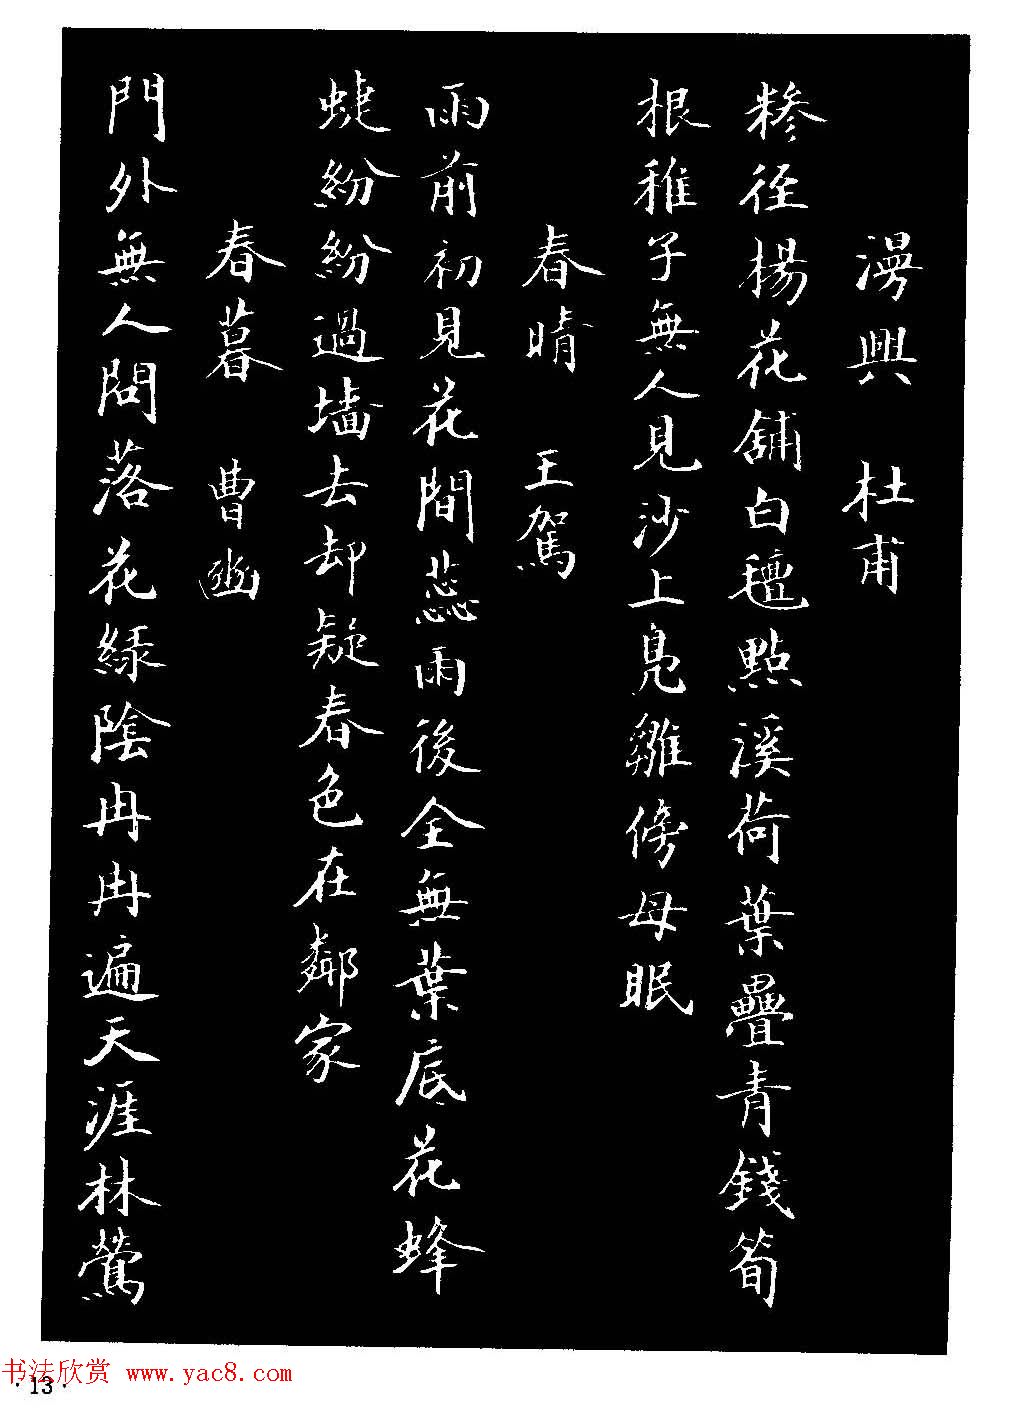 漫興 杜甫
糝径楊花舖白氊點溪荷葉疊青錢筍
根稚子無人見沙上鳧雛傍母眠
春晴 王駕
雨前初見花間蕊雨後全無葉底花蜂
蜨紛紛過墙去却疑春色在鄰家
春暮 曹豳
門外無人問落花緑陰冉冉遍天涯林鶯
书法欣赏 www.yac8.com
·13·